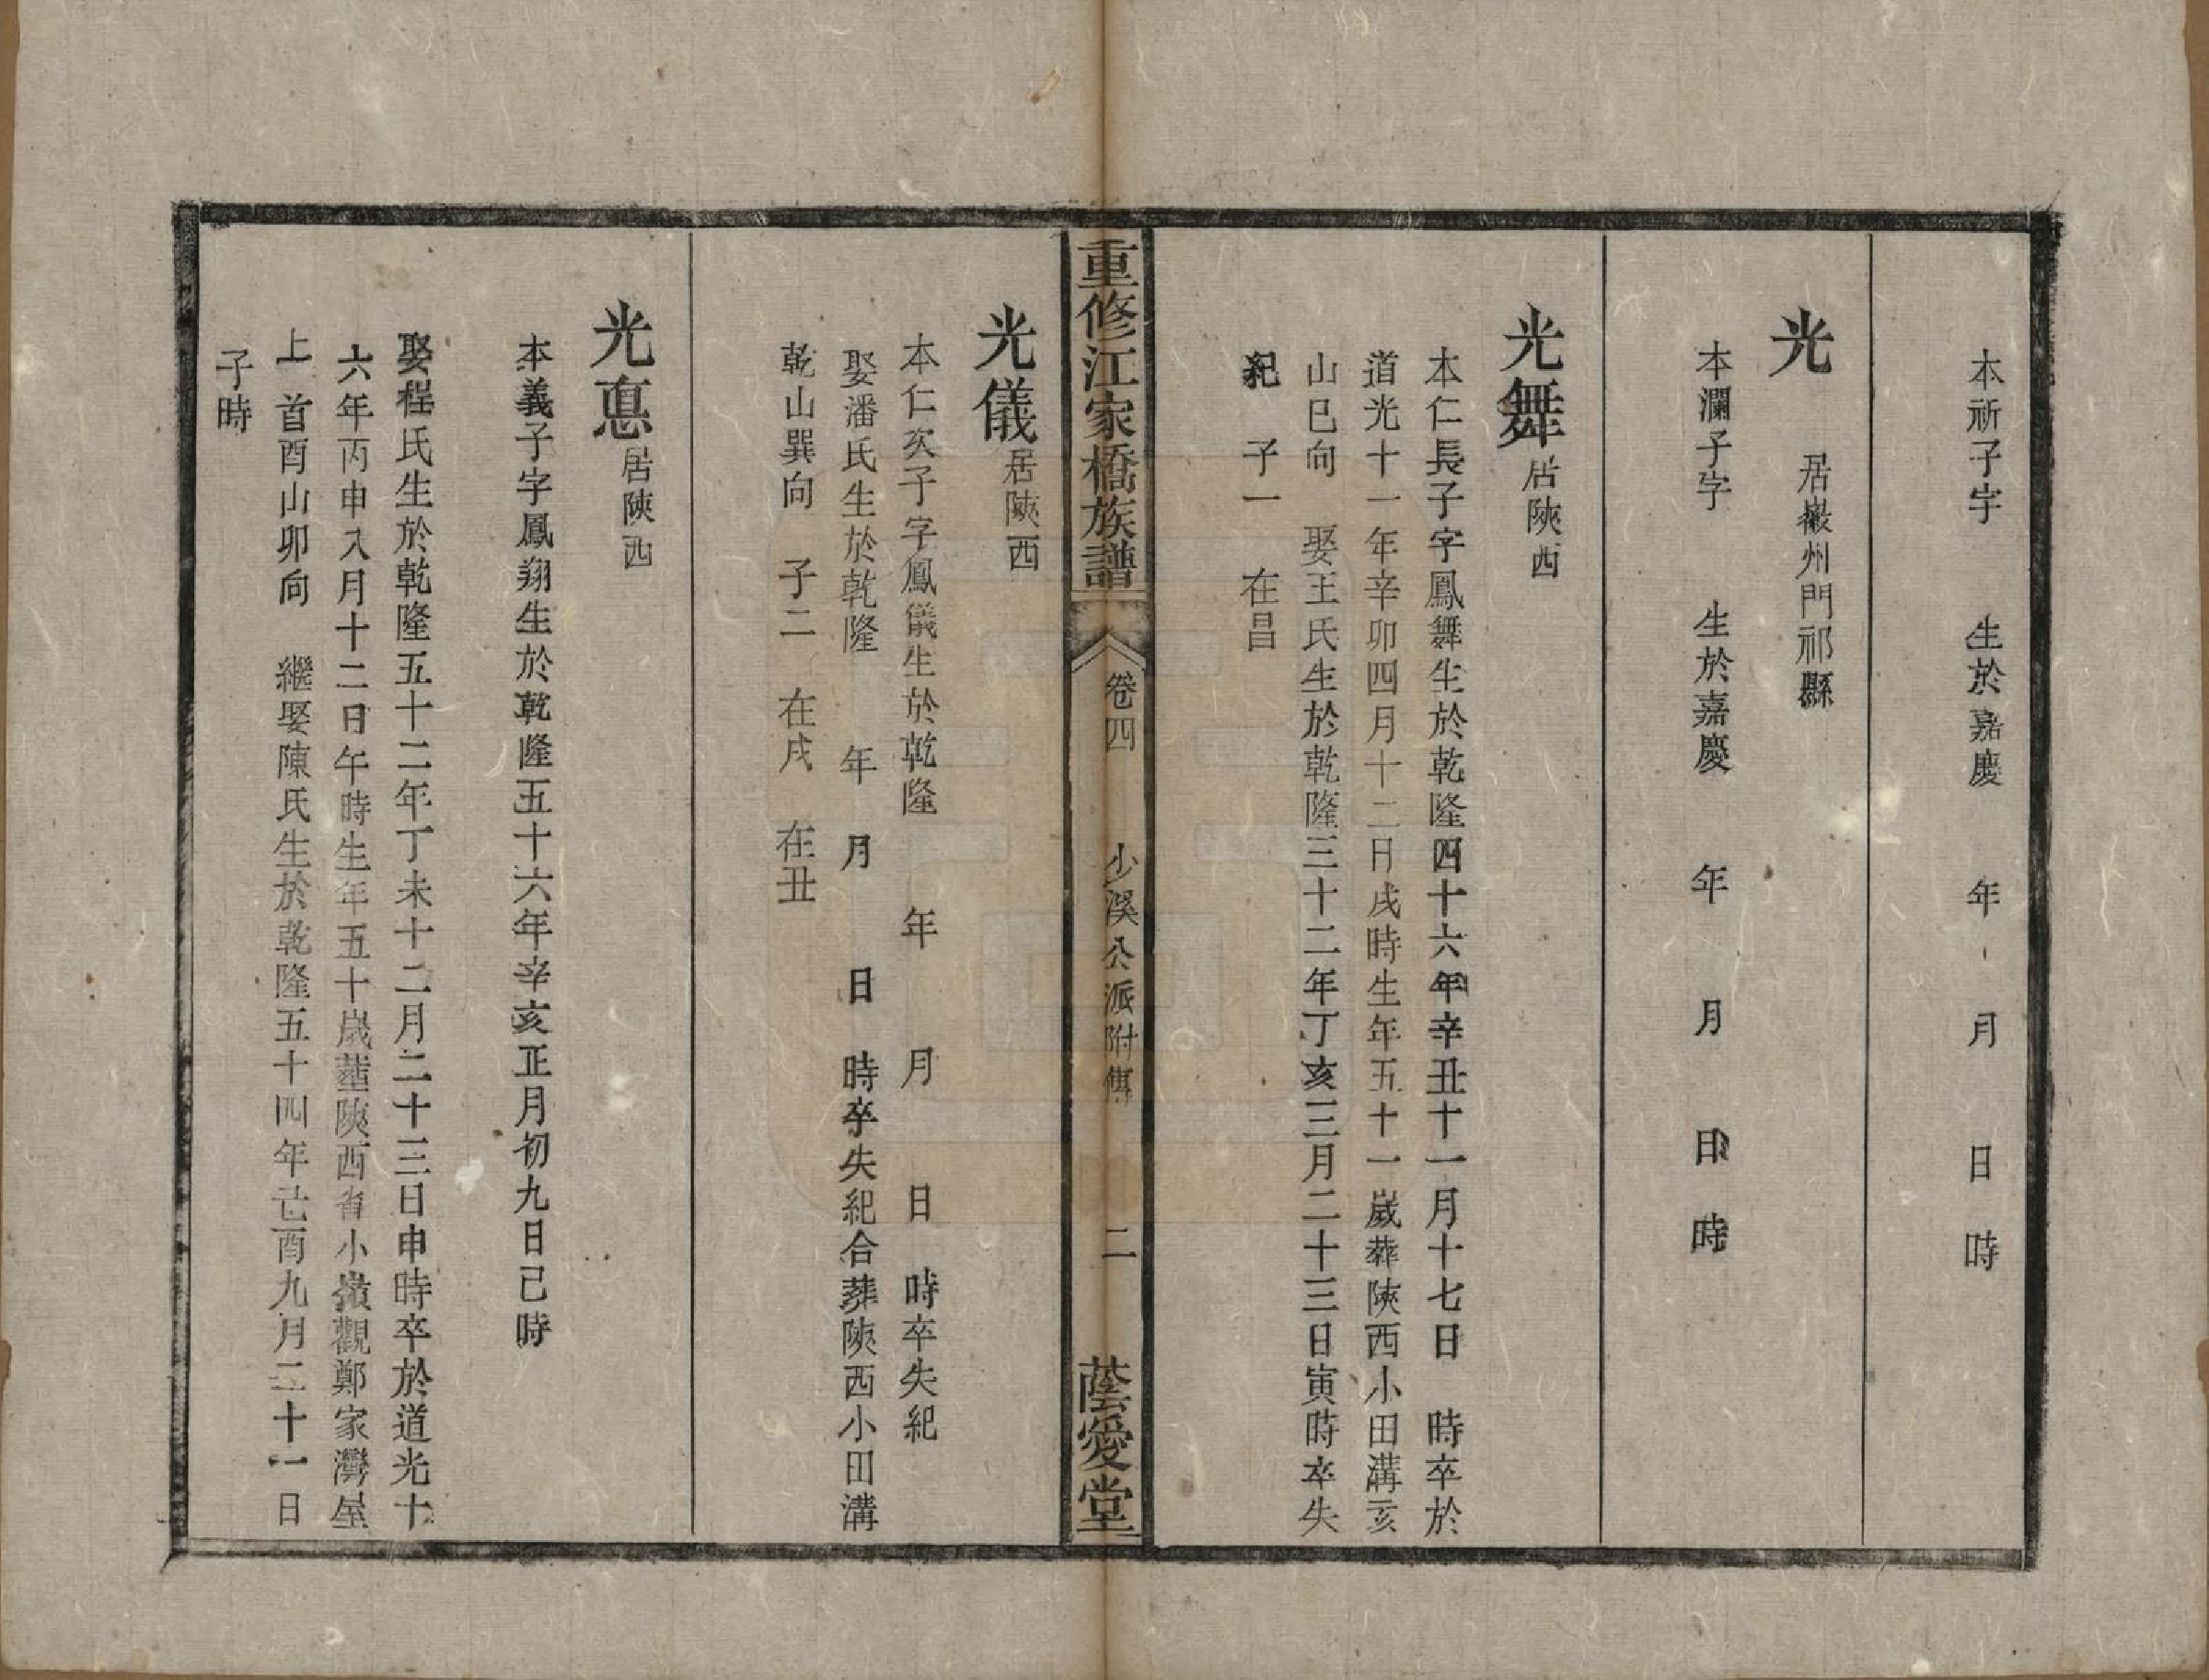 本祈子字　生於嘉慶　年　月　日　時
光　居徽州門祁縣
本瀾子字　生於嘉慶　年　月　日　時
光舞居陝西
本仁長子字鳳舞生於乾隆四十六年辛丑十一月十七日　時卒於
道光十一年辛卯四月十二日戌時生年五十一歲葬陝西小田溝亥
山巳向　娶王氏生於乾隆三十二年丁亥三月二十三日寅時卒失
紀　子一　在昌
重修江家橋族譜　卷四　少溪公派附傳　二　蔭愛堂
光儀居陝西
本仁次子字鳳儀生於乾隆　年　月　日　時卒失紀
娶潘氏生於乾隆　年　月　日　時卒失紀合葬陝西小田溝
乾山巽向　子二　在戌　在丑
光悳居陝西
本義子字鳳翔生於乾隆五十六年辛亥正月初九日己時
娶程氏生於乾隆五十二年丁未十二月二十三日申時卒於道光十
六年丙申八月十二日午時生年五十歲塟陝西省小嶺觀鄭家灣屋
上首酉山卯向　繼娶陳氏生於乾隆五十四年己酉九月二十一日
子時